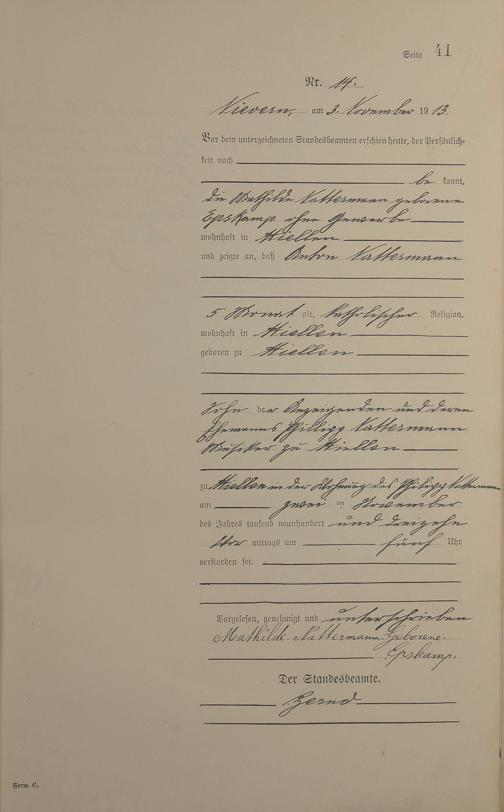 Seite 41
Nr. 14.
Nievern, am 3. November 1913.
Vor dem unterzeichneten Standesbeamten erschien heute, der Persönlich-
keit nach
be kannt,
die Mathilde Nattermann geborene
Epskamp ohne Gewerbe
wohnhaft in Miellen
und zeigte an, daß Anton Nattermann
5 Monat alt, katholischer Religion,
wohnhaft in Miellen
geboren zu Miellen
Sohn der Anzeigenden und deren
Ehemanns Philipp Nattermann
Musiker zu Miellen
zu Miellen in der Wohnung des Philipp Nattermann
am zwei ten November
des Jahres tausend neunhundert und dreizehn
Vor mittags um fünf Uhr
verstorben sei.
Vorgelesen, genehmigt und unterschrieben
Mathilde Nattermann Geborene.
Epskamp.
Der Standesbeamte.
Form. C.